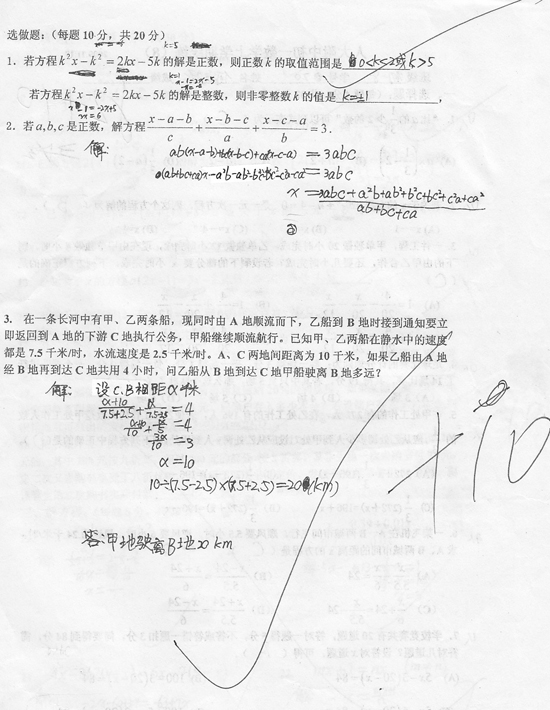 选做题：(每题 10 分，共 20 分)
k=5
1. 若方程 k²x－k²＝2kx－5k 的解是正数，则正数 k 的取值范围是 0<k<2或k>5
若方程 k²x－k²＝2kx－5k 的解是整数，则非零整数 k 的值是 k=±1，
2. 若 a,b,c 是正数，解方程 (x－a－b)/c＋(x－b－c)/a＋(x－c－a)/b＝3．
解：
ab(x-a-b)+bc(x-b-c)+ca(x-c-a) = 3abc
(ab+bc+ca)x-a²b-ab²-b²c-bc²-c²a-ca² = 3abc
x = (3abc+a²b+ab²+b²c+bc²+c²a+ca²)/(ab+bc+ca)
3. 在一条长河中有甲、乙两条船，现同时由 A 地顺流而下，乙船到 B 地时接到通知要立
即返回到 A 地的下游 C 地执行公务，甲船继续顺流航行。已知甲、乙两船在静水中的速度
都是 7.5 千米/时，水流速度是 2.5 千米/时。A、C 两地间距离为 10 千米，如果乙船由 A 地
经 B 地再到达 C 地共用 4 小时，问乙船从 B 地到达 C 地甲船驶离 B 地多远？
解：设 C.B 相距 x 千米
(x+10)/(7.5+2.5)+x/(7.5-2.5)=4
(x+10)/10+x/5=4
3x/10=3
x=10
10÷(7.5-2.5)×(7.5+2.5)=20(km)
答：甲地驶离B地20 km
+10